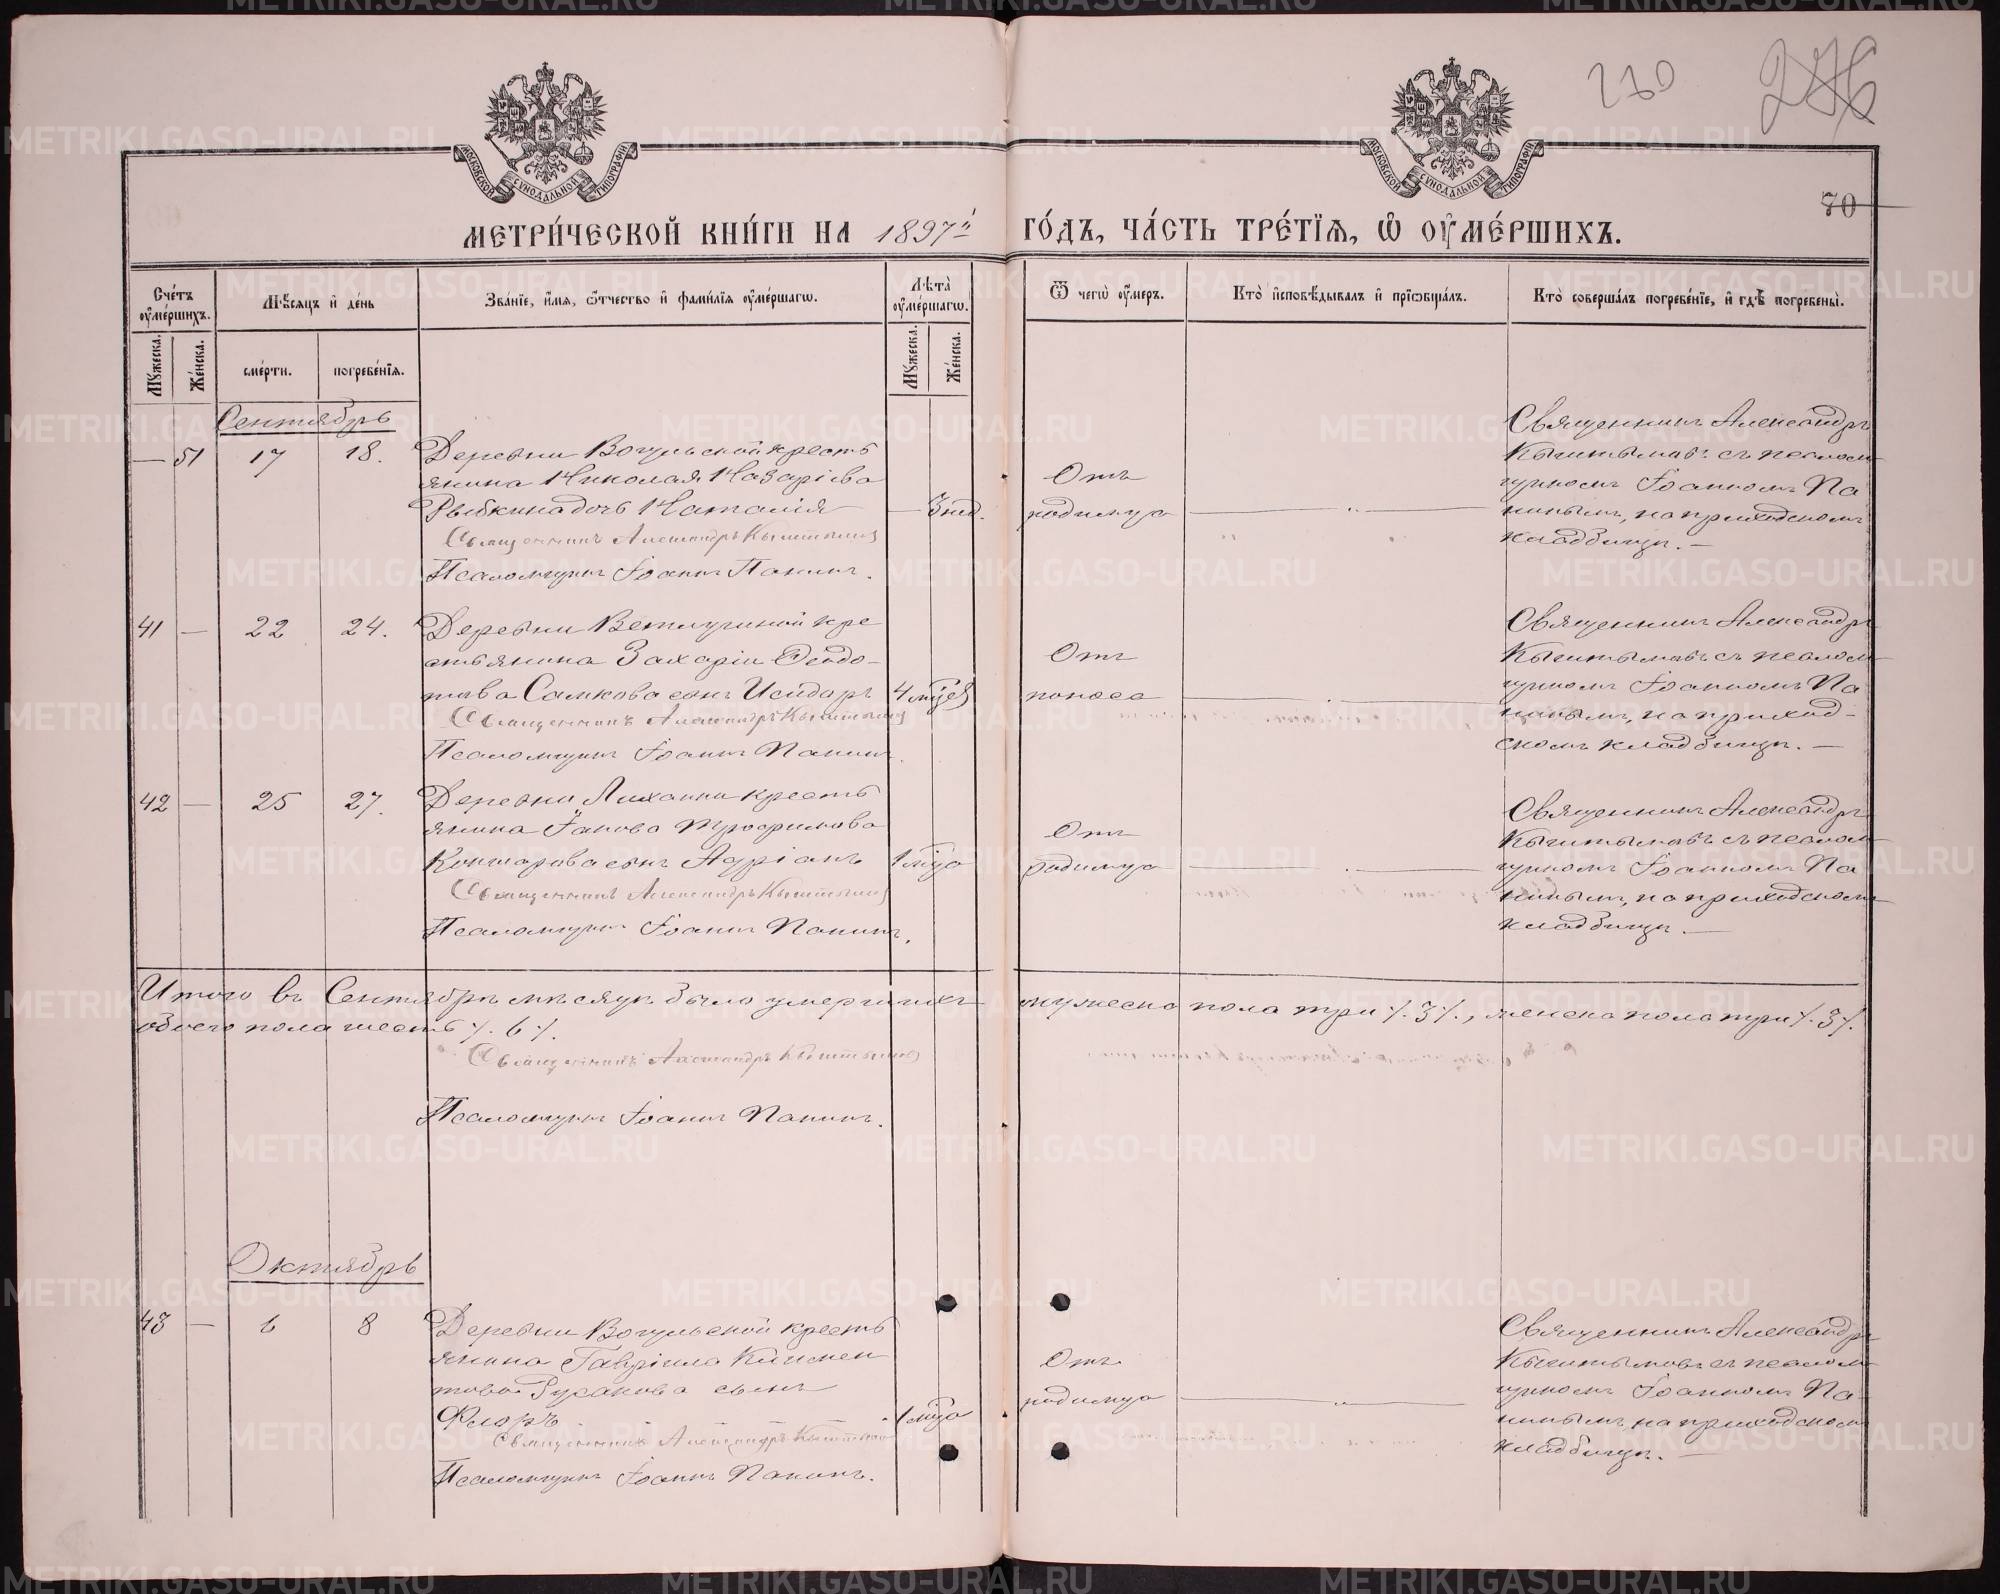 210
276
70
МОСКОВСКОЙ СѴНОДАЛЬНОЙ ТИПОГРАФІИ
МОСКОВСКОЙ СѴНОДАЛЬНОЙ ТИПОГРАФІИ
МЕТРИ́ЧЕСКОЙ КНИ́ГИ НА 1897й ГО́ДЪ, ЧА́СТЬ ТРЕ́ТІѦ, Ѡ ОУМЕ́РШИХЪ.
Сче́тъ оуме́ршихъ.
Мꙋжеска.
Же́нска.
Мѣ́сѧцъ и де́нь
сме́рти.
погребе́нїѧ.
Зва́нїе, и́мѧ, ѻ҆́тчество и фами́лїѧ оуме́ршагѡ.
Лѣ́та оуме́ршагѡ.
Мꙋжеска.
Же́нска.
Ѿ чегѡ̀ оу́меръ.
Кто̀ и҆сповѣ́дывалъ и прїѡбща́лъ.
Кто̀ соверша́лъ погребе́нїе, и гдѣ̀ погребены̀.
Сентябрь
— 51 17 18.
Деревни Вогульской кресть
янина Николая Назаріева
Рыбкина дочь Наталія — 3 нед.
Священникъ Александръ Кыштымов
Псаломщикъ Іоаннъ Панинъ.
Отъ
родимца
Священникъ Александръ
Кыштымовъ съ псалом
щикомъ Іоанномъ Па
нинымъ, на приходскомъ
кладбищѣ. —
41 — 22 24.
Деревни Ветлугиной кре
стьянина Захаріи Ѳеодо-
това Самкова сынъ Исидоръ 4 мѣсяцев
Священникъ Александръ Кыштымов
Псаломщикъ Іоаннъ Панинъ.
Отъ
поноса
Священникъ Александръ
Кыштымовъ съ псалом
щикомъ Іоанномъ Па
нинымъ, на приход-
скомъ кладбищѣ. —
42 — 25 27.
Деревни Лиханки кресть
янина Іакова Трофимова
сынъ Адріанъ 1 мѣсяца
Священникъ Александръ Кыштымов
Псаломщикъ Іоаннъ Панинъ.
Отъ
родимца
Священникъ Александръ
Кыштымовъ съ псалом
щикомъ Іоанномъ Па
нинымъ, на приходскомъ
кладбищѣ. —
Итого въ Сентябрѣ мѣсяцѣ было умершихъ мужеска пола три /. 3 /., женска пола три /. 3 /.
обоего пола шесть /. 6 /.
Священникъ Александръ Кыштымов
Псаломщикъ Іоаннъ Панинъ.
Октябрь
43 — 6 8
Деревни Вогульской кресть
янина Гавріила Климен
това Русакова сынъ
Флоръ 1 мѣсяца
Священникъ Александръ Кыштымов
Псаломщикъ Іоаннъ Панинъ.
Отъ
родимца
Священникъ Александръ
Кыштымовъ съ псалом
щикомъ Іоанномъ Па-
нинымъ, на приходском
кладбищѣ. —
METRIKI.GASO-URAL.RU